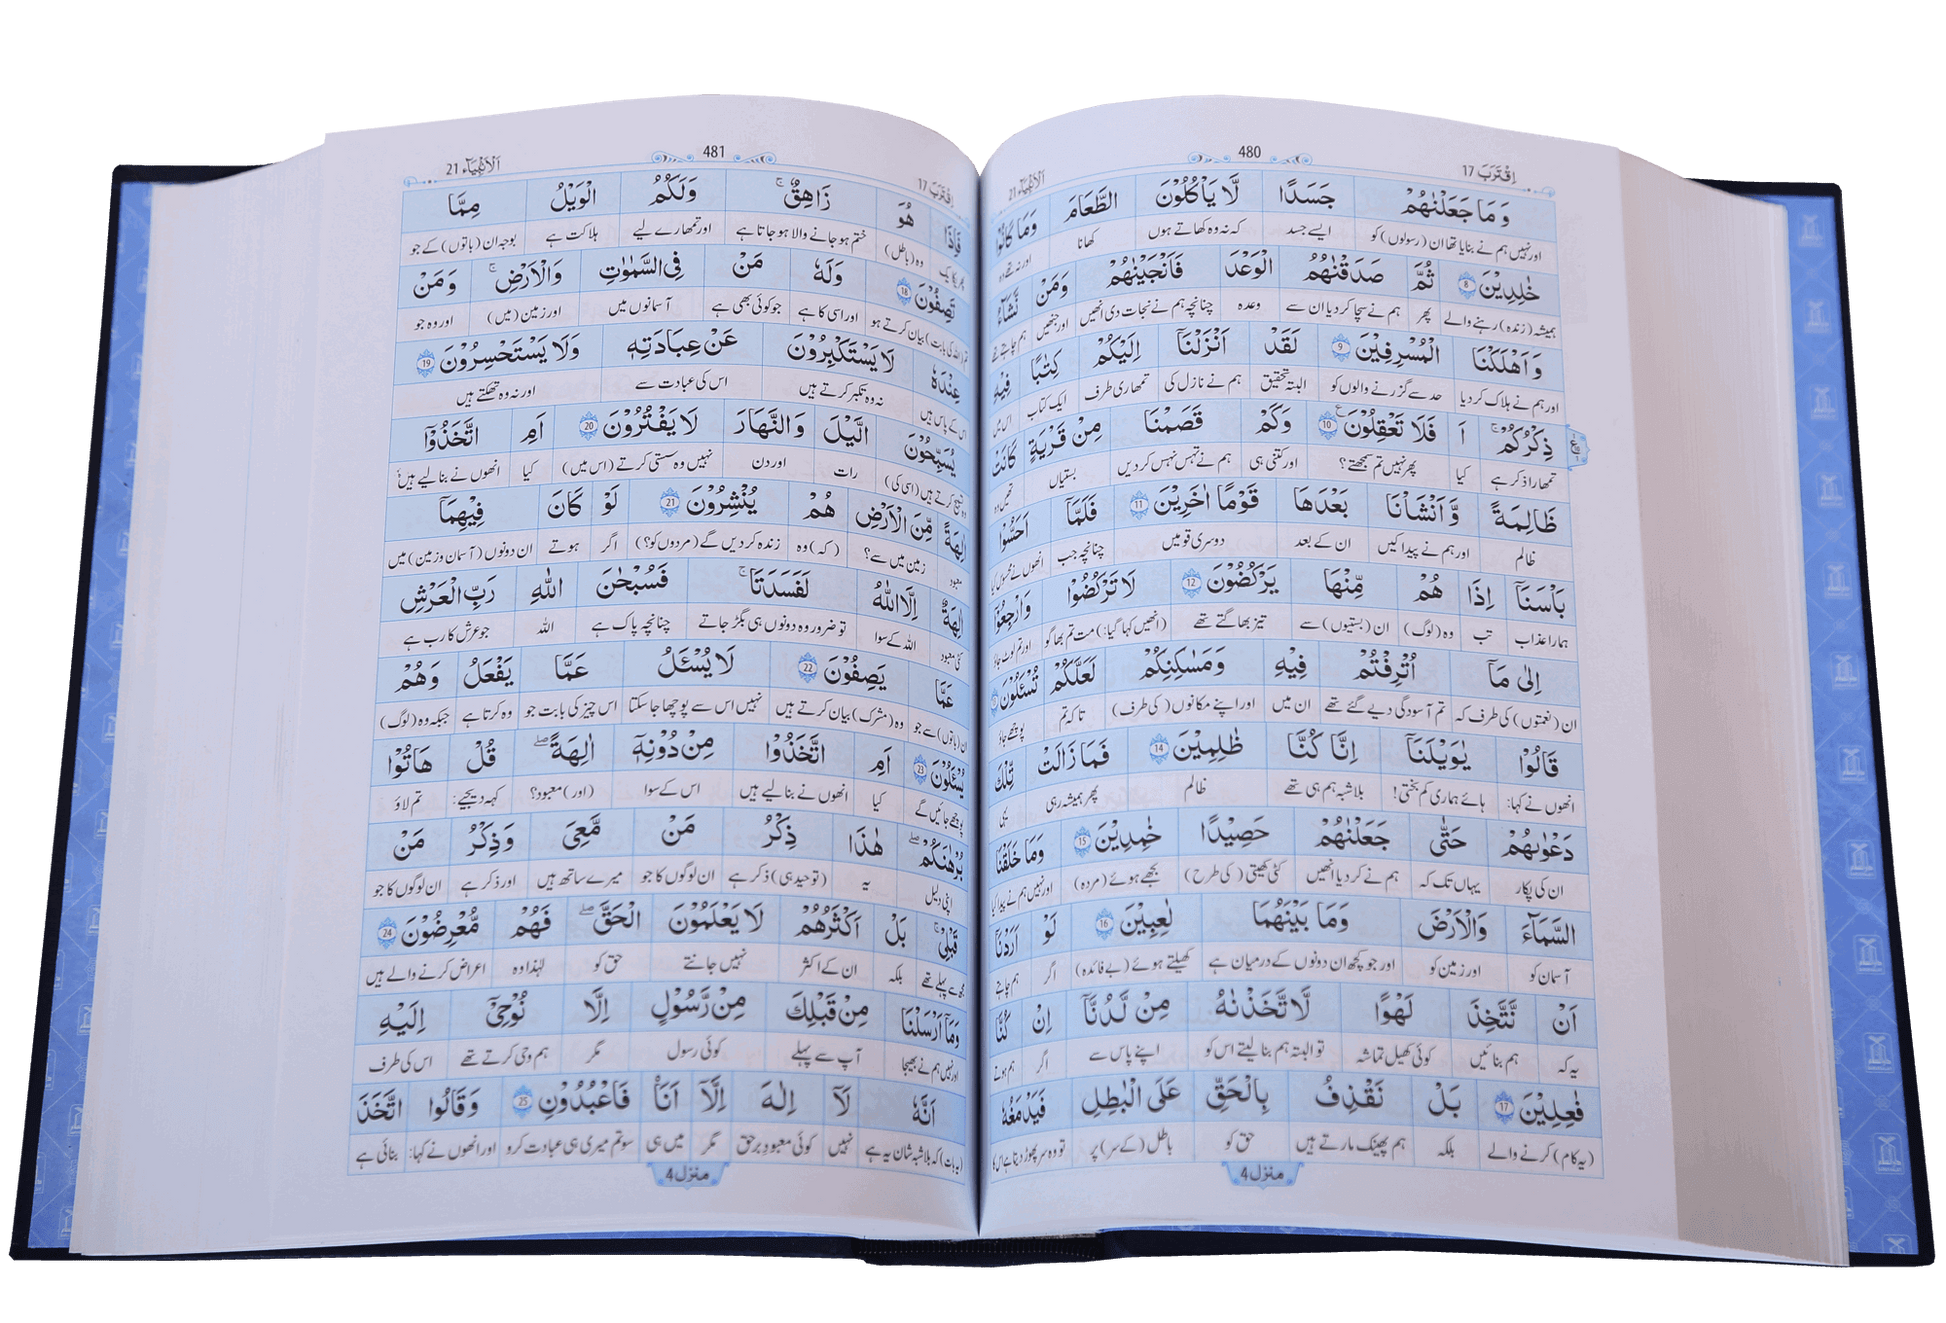 اِقْتَرَبَ 17
480
اَلْاَنْۢبِيَآء 21
وَ مَا جَعَلْنٰهُمْ جَسَدًا لَّا يَاْكُلُوْنَ الطَّعَامَ وَمَا كَانُوْا
اور نہیں ہم نے بنایا تھا ان (رسولوں) کو ایسے جسد کہ نہ وہ کھاتے ہوں کھانا اور نہ تھے وہ
خٰلِدِيْنَ 8 ثُمَّ صَدَقْنٰهُمُ الْوَعْدَ فَاَنْجَيْنٰهُمْ وَمَنْ نَّشَآءُ
ہمیشہ (زندہ) رہنے والے پھر ہم نے سچا کر دیا ان سے وعدہ چنانچہ ہم نے نجات دی انھیں اور جنھیں ہم چاہتے تھے
وَ اَهْلَكْنَا الْمُسْرِفِيْنَ 9 لَقَدْ اَنْزَلْنَآ اِلَيْكُمْ كِتٰبًا فِيْهِ
اور ہم نے ہلاک کر دیا حد سے گزرنے والوں کو البتہ تحقیق ہم نے نازل کی تمھاری طرف ایک کتاب اس میں
ذِكْرُكُمْ ۚ اَ فَلَا تَعْقِلُوْنَ 10 وَكَمْ قَصَمْنَا مِنْ قَرْيَةٍ كَانَتْ
تمھارا ذکر ہے کیا پھر نہیں تم سمجھتے؟ اور کتنی ہی ہم نے تہس نہس کر دیں بستیاں تھیں وہ
ظَالِمَةً وَّ اَنْشَاْنَا بَعْدَهَا قَوْمًا اٰخَرِيْنَ 11 فَلَمَّآ اَحَسُّوْا
ظالم اور ہم نے پیدا کیں ان کے بعد دوسری قومیں چنانچہ جب انھوں نے محسوس کیا
بَاْسَنَآ اِذَا هُمْ مِّنْهَا يَرْكُضُوْنَ 12 لَا تَرْكُضُوْا وَارْجِعُوْٓا
ہمارا عذاب تب وہ (لوگ) ان (بستیوں) سے تیز بھاگتے تھے (انھیں کہا گیا:) مت تم بھاگو اور تم لوٹ جاؤ
اِلٰى مَآ اُتْرِفْتُمْ فِيْهِ وَمَسٰكِنِكُمْ لَعَلَّكُمْ تُسْـَٔلُوْنَ
ان (نعمتوں) کی طرف کہ تم آسودگی دیے گئے تھے ان میں اور اپنے مکانوں (کی طرف) تاکہ تم پوچھے جاؤ
قَالُوْا يٰوَيْلَنَآ اِنَّا كُنَّا ظٰلِمِيْنَ 14 فَمَا زَالَتْ تِّلْكَ
انھوں نے کہا: ہائے ہماری کم بختی! بلاشبہ ہم ہی تھے ظالم پھر ہمیشہ رہی یہی
دَعْوٰىهُمْ حَتّٰى جَعَلْنٰهُمْ حَصِيْدًا خٰمِدِيْنَ 15 وَمَا خَلَقْنَا
ان کی پکار یہاں تک کہ ہم نے کر دیا انھیں کٹی کھیتی (کی طرح) بجھے ہوئے (مردہ) اور نہیں ہم نے پیدا کیا
السَّمَآءَ وَالْاَرْضَ وَمَا بَيْنَهُمَا لٰعِبِيْنَ 16 لَوْ اَرَدْنَآ
آسمان کو اور زمین کو اور جو کچھ ان دونوں کے درمیان ہے کھیلتے ہوئے (بے فائدہ) اگر ہم چاہتے
اَنْ نَّتَّخِذَ لَهْوًا لَّاتَّخَذْنٰهُ مِنْ لَّدُنَّآ اِنْ كُنَّا
یہ کہ ہم بنائیں کوئی کھیل تماشہ تو البتہ ہم بنا لیتے اس کو اپنے پاس سے اگر ہم ہوتے
فٰعِلِيْنَ 17 بَلْ نَقْذِفُ بِالْحَقِّ عَلَى الْبَاطِلِ فَيَدْمَغُهٗ
(یہ کام) کرنے والے بلکہ ہم پھینک مارتے ہیں حق کو باطل (کے سر) پر تو وہ سر پھوڑ دیتا ہے اس کا
منزل 4
اِقْتَرَبَ 17
481
اَلْاَنْۢبِيَآء 21
فَاِذَا هُوَ زَاهِقٌ ۚ وَلَكُمُ الْوَيْلُ مِمَّا
وہ (باطل) ختم ہو جانے والا ہو جاتا ہے اور تمھارے لیے ہلاکت ہے بوجہ ان (باتوں) کے جو
تَصِفُوْنَ 18 وَلَهٗ مَنْ فِى السَّمٰوٰتِ وَالْاَرْضِ ۚ وَمَنْ
بیان کرتے ہو اور اسی کا ہے جو کوئی بھی ہے آسمانوں میں اور زمین (میں) اور وہ جو
عِنْدَهٗ لَا يَسْتَكْبِرُوْنَ عَنْ عِبَادَتِهٖ وَلَا يَسْتَحْسِرُوْنَ 19
اس کے پاس ہیں نہ وہ تکبر کرتے ہیں اس کی عبادت سے اور نہ وہ تھکتے ہیں
يُسَبِّحُوْنَ الَّيْلَ وَ النَّهَارَ لَا يَفْتُرُوْنَ 20 اَمِ اتَّخَذُوْٓا
وہ تسبیح کرتے ہیں (اسی کی) رات اور دن نہیں وہ سستی کرتے (اس میں) کیا انھوں نے بنا لیے ہیں
اٰلِهَةً مِّنَ الْاَرْضِ هُمْ يُنْشِرُوْنَ 21 لَوْ كَانَ فِيْهِمَآ
معبود زمین میں سے؟ (کہ) وہ زندہ کر دیں گے (مردوں کو؟) اگر ہوتے ان دونوں (آسمان و زمین) میں
اٰلِهَةٌ اِلَّا اللّٰهُ لَفَسَدَتَا ۚ فَسُبْحٰنَ اللّٰهِ رَبِّ الْعَرْشِ
کئی معبود اللہ کے سوا تو ضرور وہ دونوں ہی بگڑ جاتے چنانچہ پاک ہے اللہ جو عرش کا رب ہے
عَمَّا يَصِفُوْنَ 22 لَا يُسْـَٔلُ عَمَّا يَفْعَلُ وَهُمْ
ان (باتوں) سے جو وہ (مشرک) بیان کرتے ہیں نہیں اس سے پوچھا جا سکتا اس چیز کی بابت جو وہ کرتا ہے جبکہ وہ (لوگ)
يُسْـَٔلُوْنَ 23 اَمِ اتَّخَذُوْا مِنْ دُوْنِهٖٓ اٰلِهَةً ۖ قُلْ هَاتُوْا
پوچھے جائیں گے کیا انھوں نے بنا لیے ہیں اس کے سوا (اور) معبود؟ کہہ دیجیے: تم لاؤ
بُرْهَانَكُمْ ۖ هٰذَا ذِكْرُ مَنْ مَّعِيَ وَذِكْرُ مَنْ
اپنی دلیل یہ (توحید ہی) ذکر ہے ان لوگوں کا جو میرے ساتھ ہیں اور ذکر ہے ان لوگوں کا جو
قَبْلِيْ ۚ بَلْ اَكْثَرُهُمْ لَا يَعْلَمُوْنَ الْحَقَّ ۖ فَهُمْ مُّعْرِضُوْنَ 24
مجھ سے پہلے تھے بلکہ ان کے اکثر نہیں جانتے حق کو لہٰذا وہ اعراض کرنے والے ہیں
وَمَآ اَرْسَلْنَا مِنْ قَبْلِكَ مِنْ رَّسُوْلٍ اِلَّا نُوْحِيْٓ اِلَيْهِ
اور نہیں ہم نے بھیجا آپ سے پہلے کوئی رسول مگر ہم وحی کرتے تھے اس کی طرف
اَنَّهٗ لَآ اِلٰهَ اِلَّآ اَنَا۠ فَاعْبُدُوْنِ 25 وَ قَالُوا اتَّخَذَ
(یہ بات) کہ بلاشبہ شان یہ ہے نہیں کوئی معبود برحق مگر میں ہی سو تم میری ہی عبادت کرو اور انھوں نے کہا: بنائی ہے
منزل 4